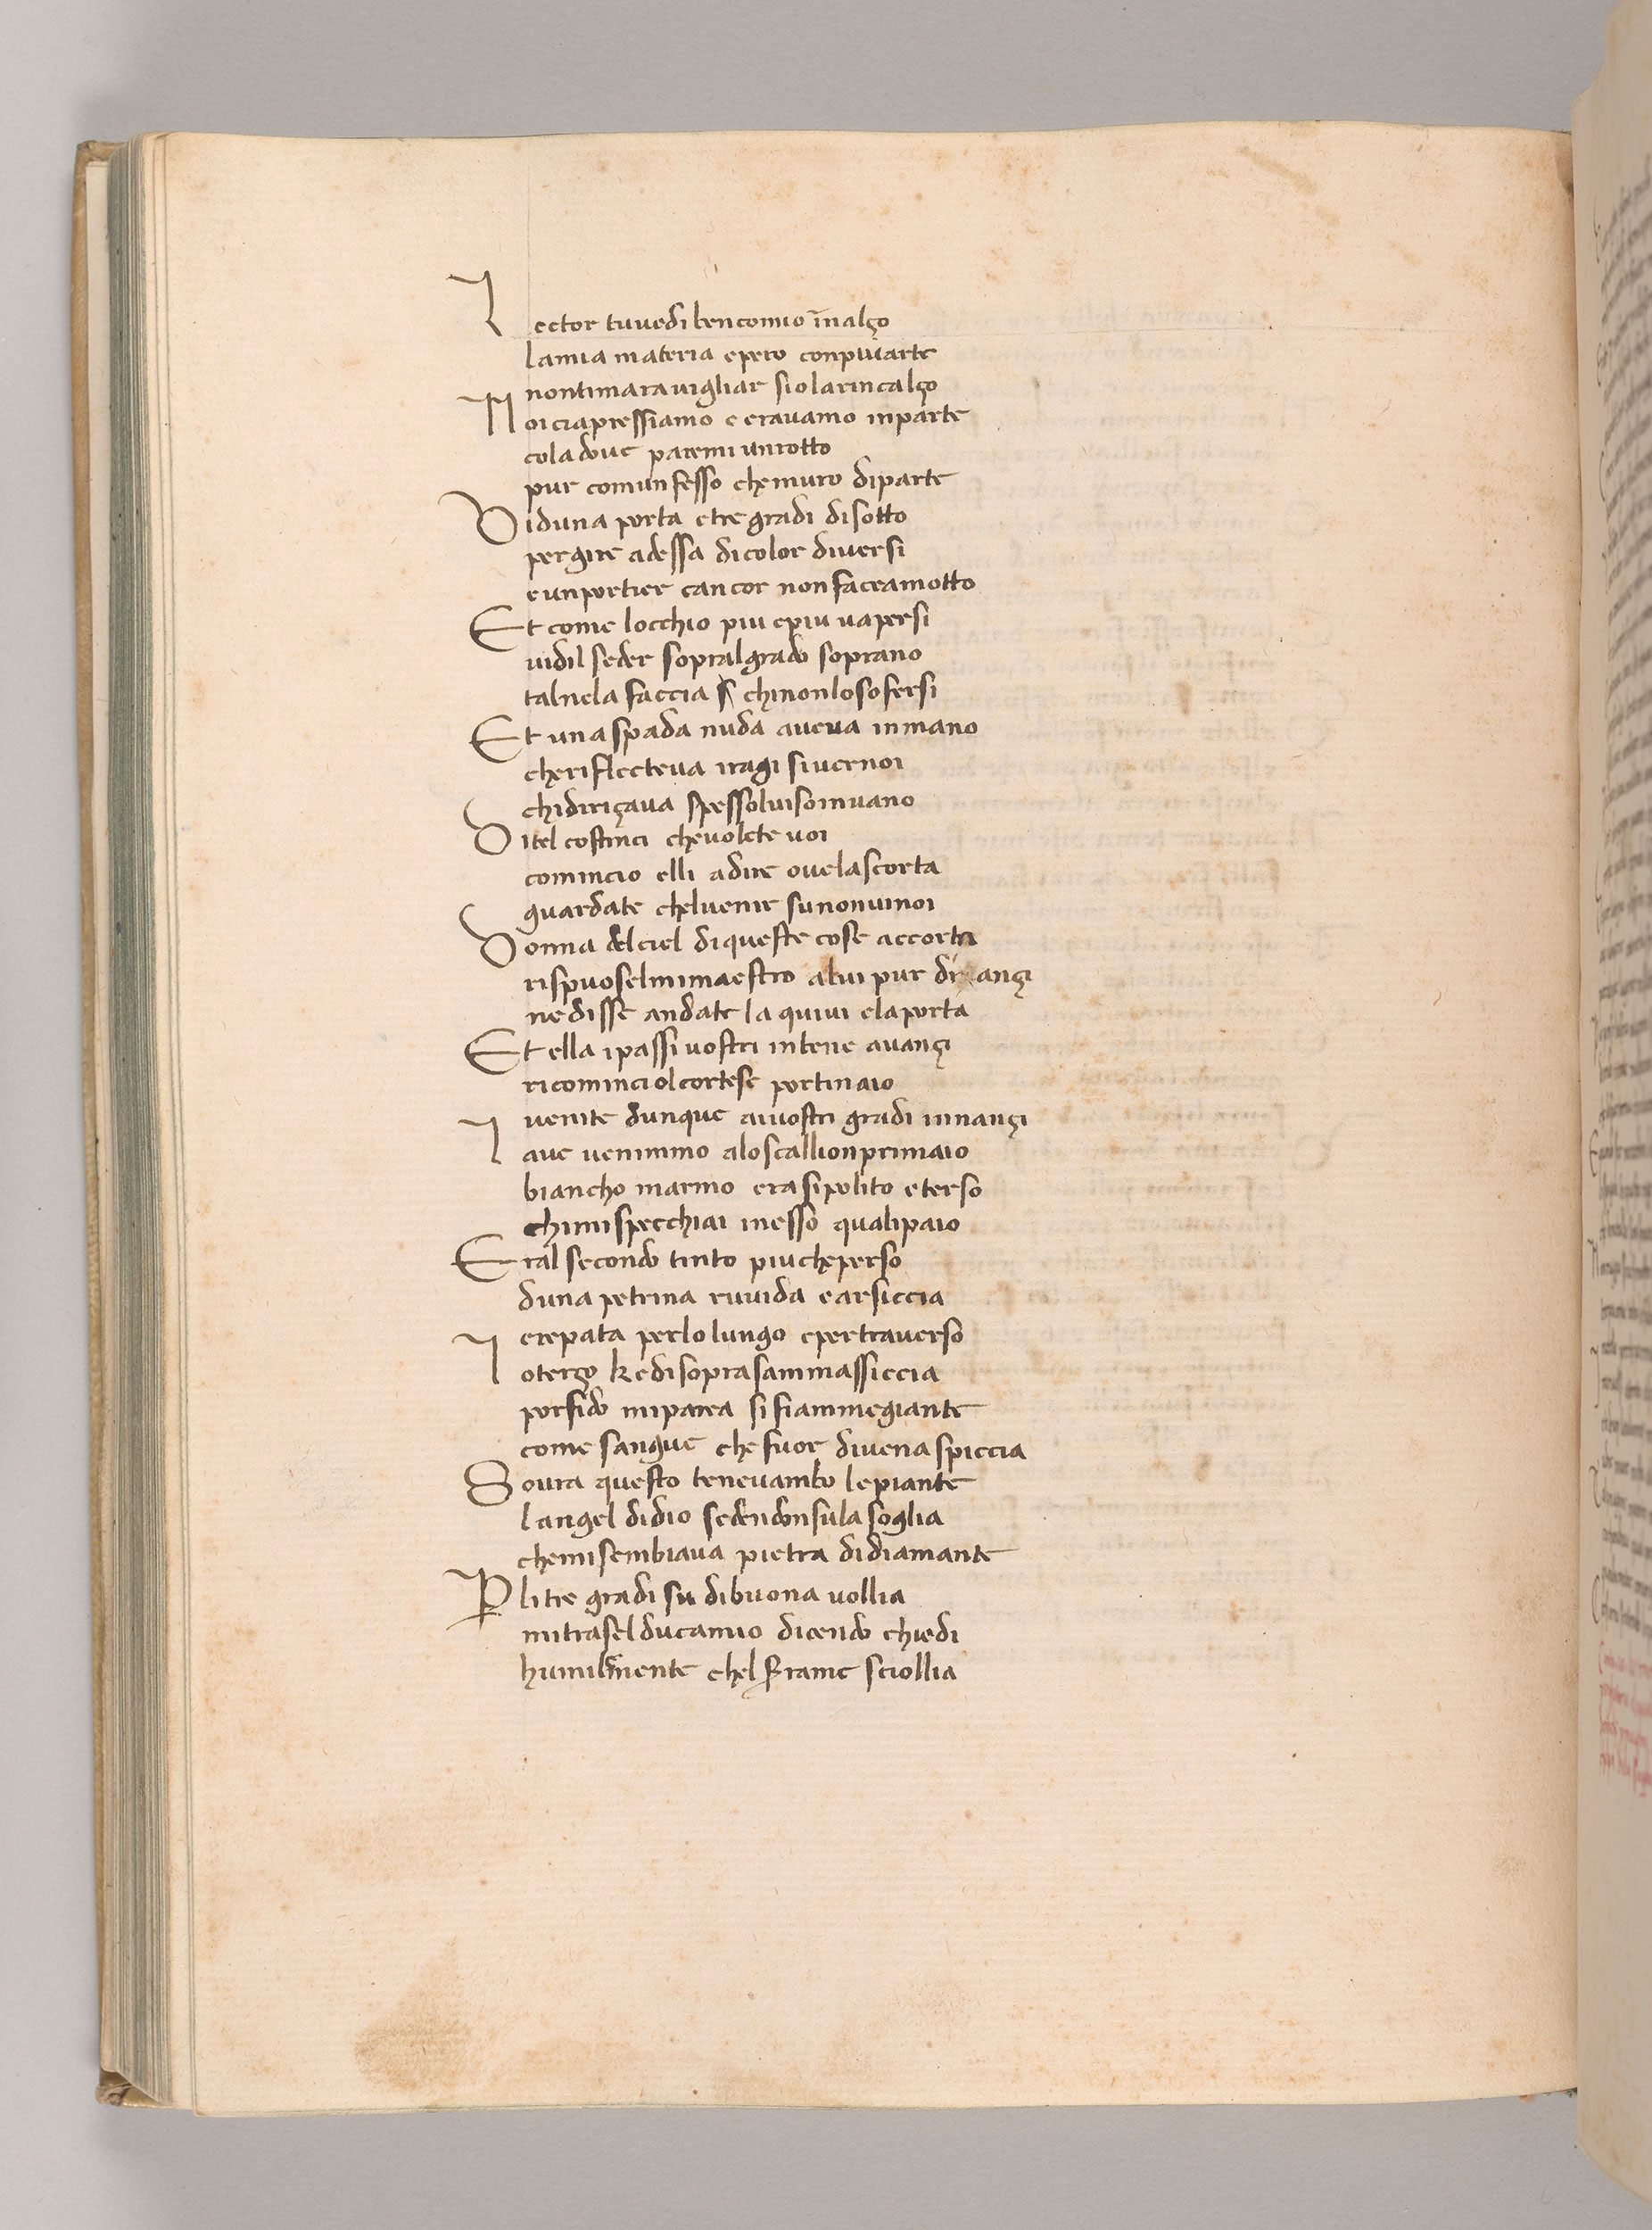 Lector tuuedi bencomio īnalço
lamia materia epero conpiuiarte
nontimarauigliar siolarincalço
Noiciapressiamo e erauamo inparte
cola doue paremi unrotto
pur comunfesso chemuro diparte
Vi duna porta etre gradi disotto
pergire adessa dicolor diuersi
eunportier cancor nonfaceamotto
Et come locchio piu epiu uapersi
uidil seder sopralgrado soprano
talnela faccia chinonlosofersi
Et una spada nuda aueua inmano
cheriflecteua iragi siuernoi
chidiriçaua spessoluisoinuano
Ditel costinci cheuolete uoi
comincio elli adire ouelascorta
guardate cheluenir sunonuinoi
Donna delciel diqueste cose accorta
rispuoselmimaestro alui pur di ançi
nedisse andate la quiui elaporta
Et ella ipassi uostri inbene auançi
ricominciolcortese portinaio
uenite dunque aiuostri gradi innançi
Laue uenimmo aloscallionprimaio
biancho marmo erasipolito eterso
chimispecchiai inesso qualipaio
Eral secondo tinto piucheperso
duna petrina ruuida earsiccia
crepata perlolungo epertrauerso
Loterço kedisoprasammassiccia
porfido miparea si fiammegiante
come sangue che fuor diuena spiccia
Soura questo teneuambo lepiante
langel didio sedendonsula soglia
chemisembiaua pietra didiamante
Plitre gradi su dibuona uollia
mitraselducamio dicendo chiedi
humilmente chel serrame sciollia